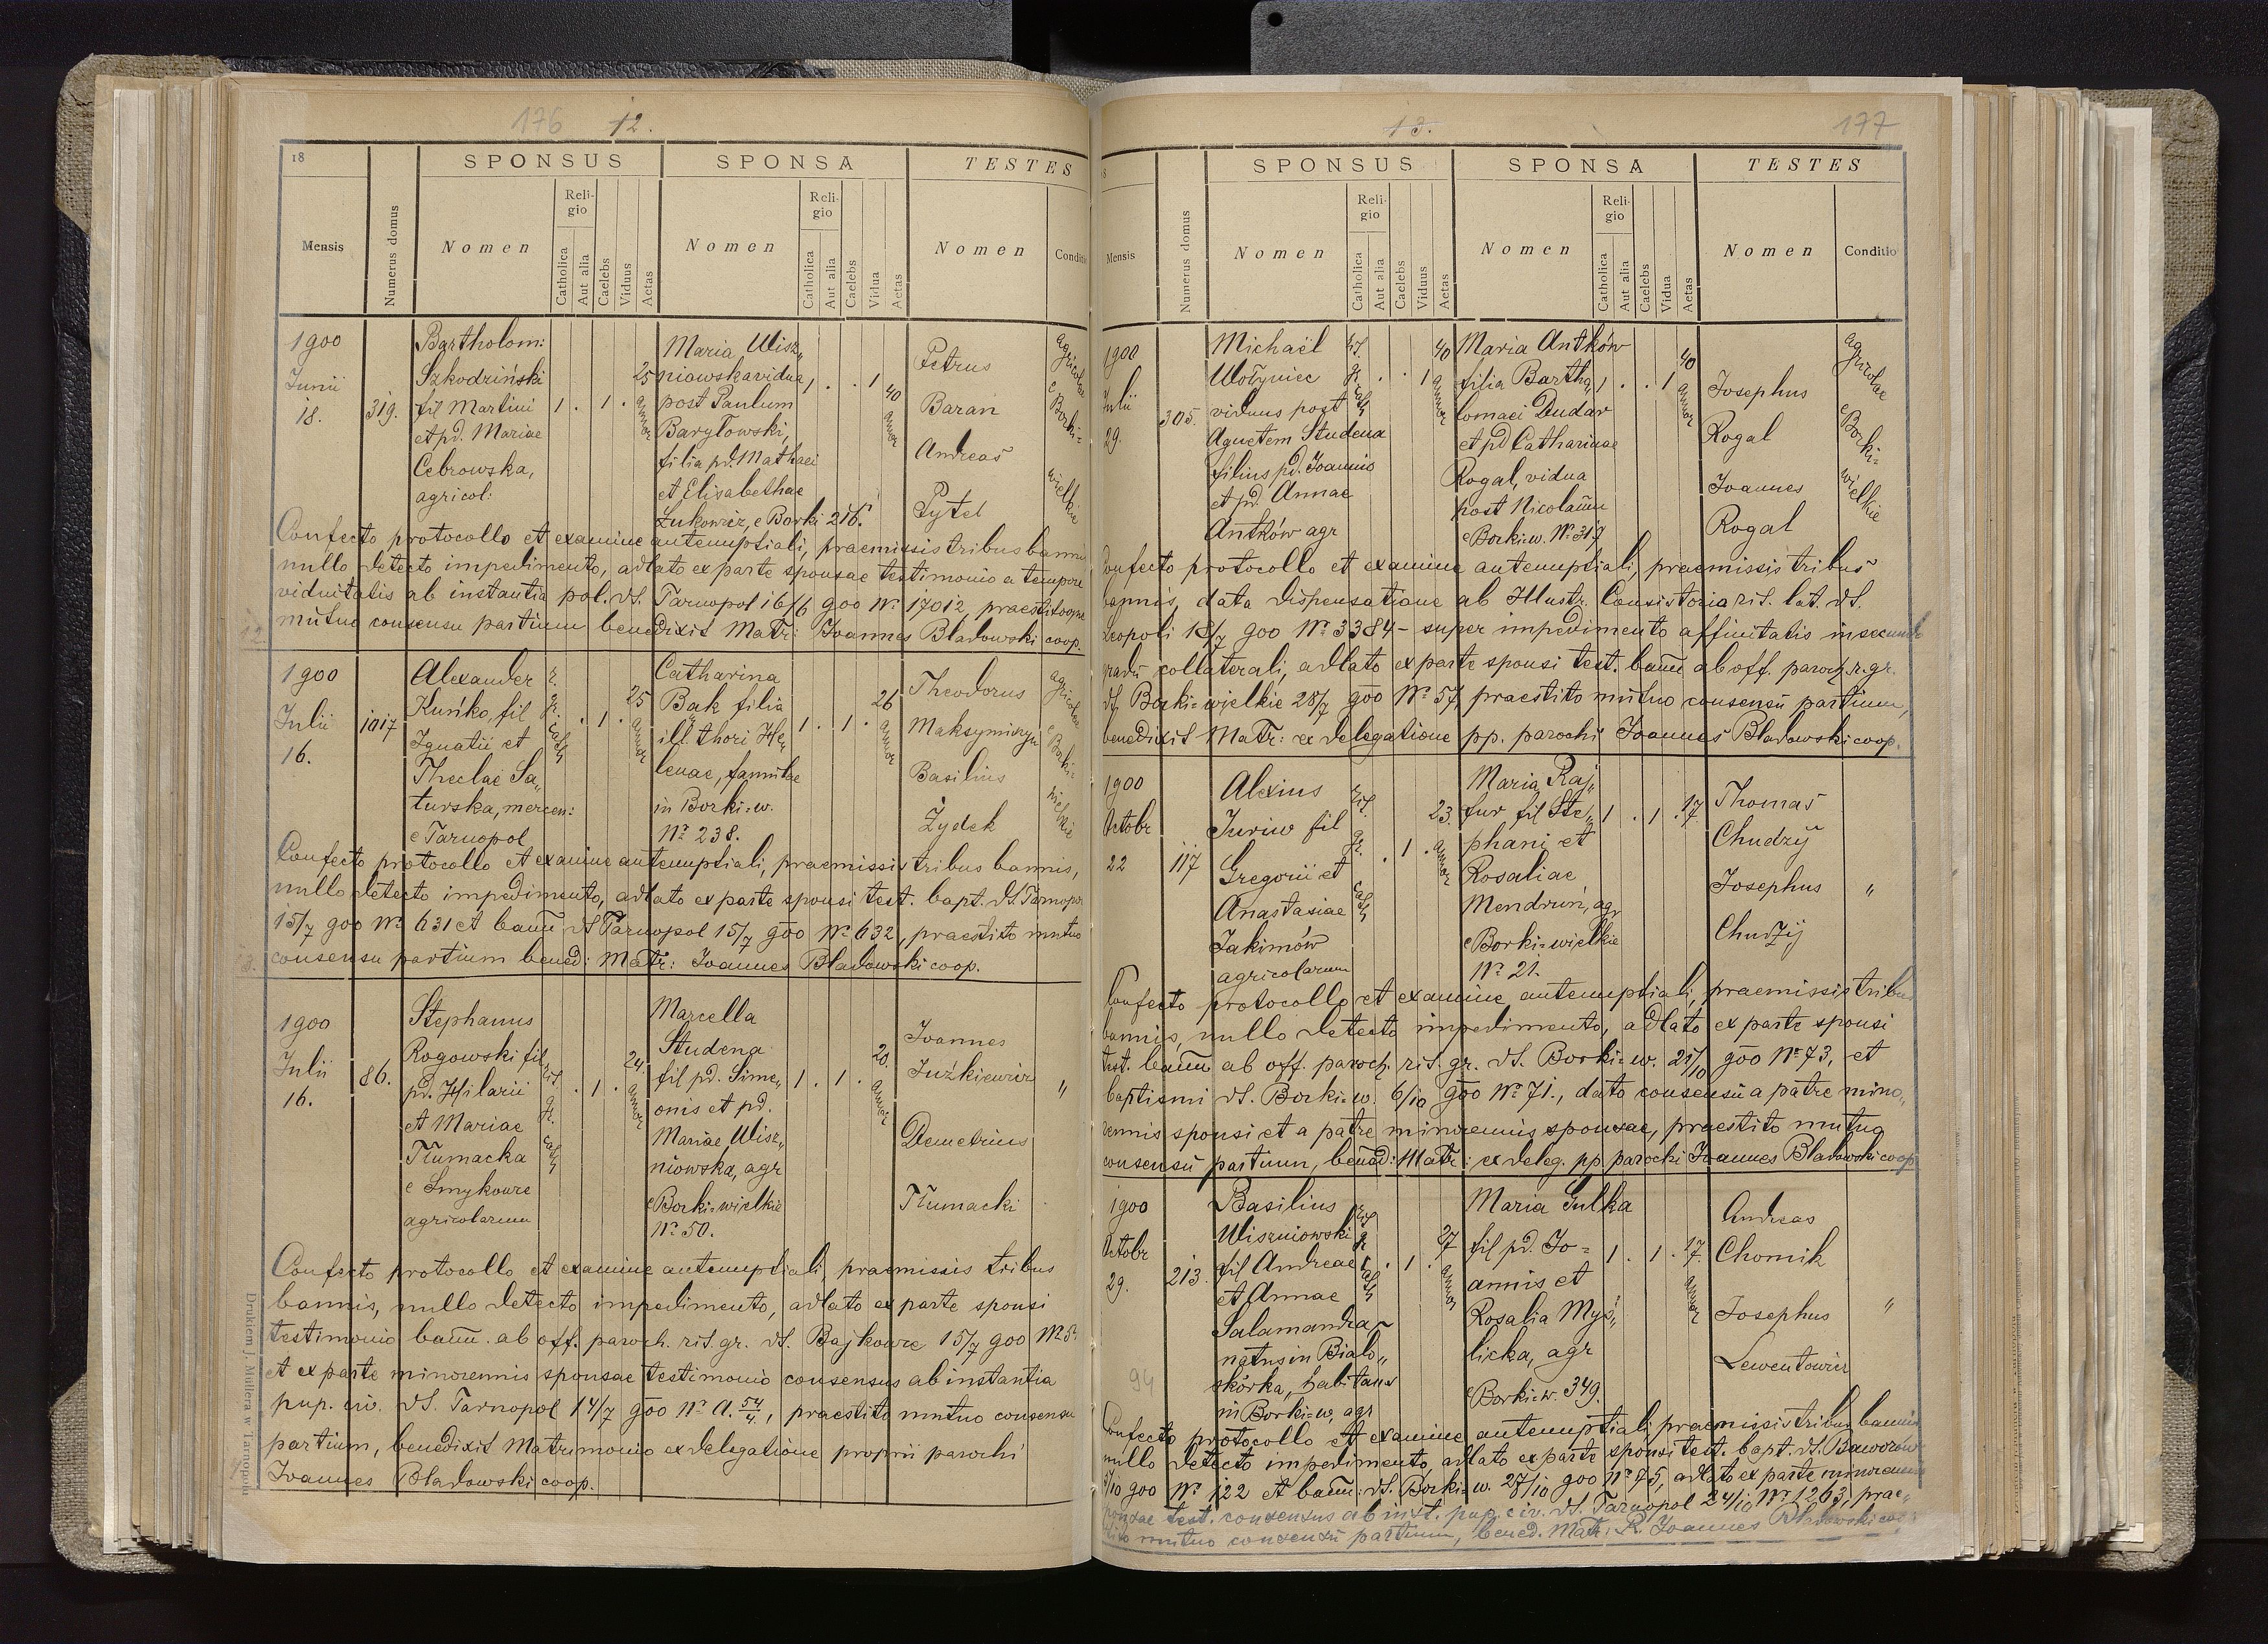 176 12.
18
SPONSUS SPONSA TESTES
Mensis
Numerus domus
Nomen
Religio
Catholica
Aut alia
Caelebs
Viduus
Aetas
Nomen
Religio
Catholica
Aut alia
Caelebs
Vidua
Aetas
Nomen
Conditio
1900
Junii
18.
319.
Bartholom:
Szkodziński
fil Martini
et pd. Mariae
Cebrowska,
agricol:
1 . 1 .
25
annor
Maria Wisz„
niowska vidua
post Paulum
Barylowski,
filia pd. Mathaei
et Elisabethae
Łukowicz, e Borki 216.
1 . . 1
40
annor
Petrus
Baran
Andreas
Pytel
agricolae
e Borki=
wielkie
Confecto protocollo et examine antenuptiali, praemissis tribus bannis
nullo detecto impedimento, adlato ex parte sponsae testimonio a tempore
viduitatis ab instantia pol. dd. Tarnopol 16/6 900 Nr. 17012, praestitoque
mutuo consensu partium benedixit Matr: Joannes Bladowski coop.
12.
1900
Julii
16.
1017
Alexander
Kuńko, fil
Ignatii et
Theclae Sa„
turska, mercen:
e Tarnopol
r.
gr.
cath
. 1 .
25
annor
Catharina
Bąk filia
ill. thori He„
lenae, famulae
in Borki=w.
Nr. 238.
1 . 1 .
26
annor
Theodorus
Maksymiszyn
Basilius
Żydek
agricolae
e Borki=
wielkie
Confecto protocollo et examine antenuptiali, praemissis tribus bannis,
nullo detecto impedimento, adlato ex parte sponsi test. bapt. dd. Tarnopol
15/7 900 Nr. 631 et bann dd Tarnopol 15/7 900 Nr. 632, praestito mutuo
consensu partium bened: Matr: Joannes Bladowski coop.
13.
1900
Julii
16.
86.
Stephanus
Rogowski fil
pd. Hilarii
et Mariae
Tłumacka
e Smykowce
agricolarum
rit.
gr.
cath
. 1 .
24.
annor
Marcella
Studena
fil pd. Sime„
onis et pd.
Mariae Wisz„
niowska, agr
e Borki=wielkie
Nr. 50.
1 . 1 .
20.
annor
Joannes
Juźkiewicz
Demetrius
Tłumacki
"
Confecto protocollo et examine antenuptiali, praemissis tribus
bannis, nullo detecto impedimento, adlato ex parte sponsi
testimonio bann. ab off. paroch. rit. gr. dd. Bajkowce 15/7 900
et ex parte minorennis sponsae testimonio consensus ab instantia
pup. civ. dd. Tarnopol 14/7 900 Nr. A. 54/4., praestito mutuo consensu
partium, benedixit Matrimonio ex delegatione proprii parochi
Joannes Bladowski coop.
Drukiem J. Müllera w Tarnopolu
13.
177
SPONSUS SPONSA TESTES
Mensis
Numerus domus
Nomen
Religio
Catholica
Aut alia
Caelebs
Viduus
Aetas
Nomen
Religio
Catholica
Aut alia
Caelebs
Vidua
Aetas
Nomen
Conditio
1900
Julii
29.
305.
Michaël
Wołyniec
viduus post
Agnetem Studena
filius pd. Joannis
et pd. Annae
Antków agr
rit.
gr.
cath
. . 1
40
annor
Maria Antków
filia Bartho„
lomaei Dudar
et pd Catharinae
Rogal, vidua
post Nicolaum
e Borki=w. Nr. 319
1 . . 1
40
annor
Josephus
Rogal
Joannes
Rogal
agricolae
e Borki=
wielkie
Confecto protocollo et examine antenuptiali, praemissis tribus
bannis, data dispensatione ab Illustr. Consistoria rit. lat. dd.
Leopoli 18/7 900 Nr. 3384 - super impedimento affinitatis in secundo
gradu collaterali, adlato ex parte sponsi test. bann ab off. paroch. r. gr.
dd. Borki=wielkie 28/7 900 Nr. 57, praestito mutuo consensu partium,
benedixit Matr: ex delegatione pp. parochi Joannes Bladowski coop.
1900
Octobr
22
117
Alexius
Juriw fil
Gregorii et
Anastasiae
Jakimów
agricolarum
rit.
gr.
cath
. 1 .
23.
annor
Maria Raj„
fur fil Ste„
phani et
Rosaliae
Mendruń, agr
e Borki=wielkie
Nr. 21.
1 . 1 .
17
Thomas
Chudzij
Josephus "
Chudzij
Confecto protocollo et examine antenuptiali, praemissis tribus
bannis, nullo detecto impedimento, adlato ex parte sponsi
test. bann ab off. paroch. rit. gr. dd. Borki=w. 21/10 900 Nr. 73, et
baptismi dd. Borki=w. 6/10 900 Nr. 71., dato consensu a patre mino„
rennis sponsi et a patre minorennis sponsae, praestito mutuo
consensu partium, bened: Matr: ex deleg. pp. parochi Joannes Bladowski coop
1900
Octobr
29.
213.
Basilius
Wiszniowski
fil Andreae
et Annae
Salamandra
natus in Biało„
skórka, habitans
in Borki=w, agr
rit
gr
cath
. 1 .
27
annor
Maria Gulka
fil pd. Jo=
annis et
Rosalia Myś„
licka, agr
e Borki=w 349.
1 . 1 .
17.
annor
Andreas
Chomik
Josephus "
Lewentowicz
94
Confecto protocollo et examine antenuptiali, praemissis tribus bannis
nullo detecto impedimento, adlato ex parte sponsi test. bapt. dd. Baworów
5/10 900 Nr. 122 et bann: dd. Borki=w. 28/10 900 Nr. 75, adlato ex parte minorennis
sponsae test. consensus ab inst. pup. civ. dd. Tarnopol 24/10 Nr. 1263, prae„
stito mutuo consensu partium, bened. Matr: R. Joannes Bladowski coop.